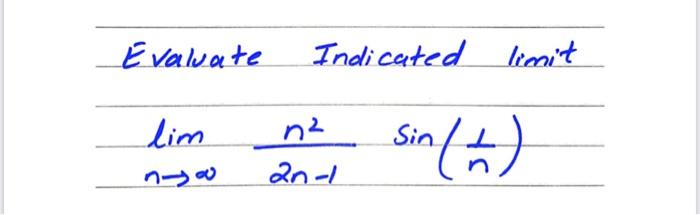 Evaluate Indicated limit
lim n→∞ n²/(2n-1) sin(1/n)